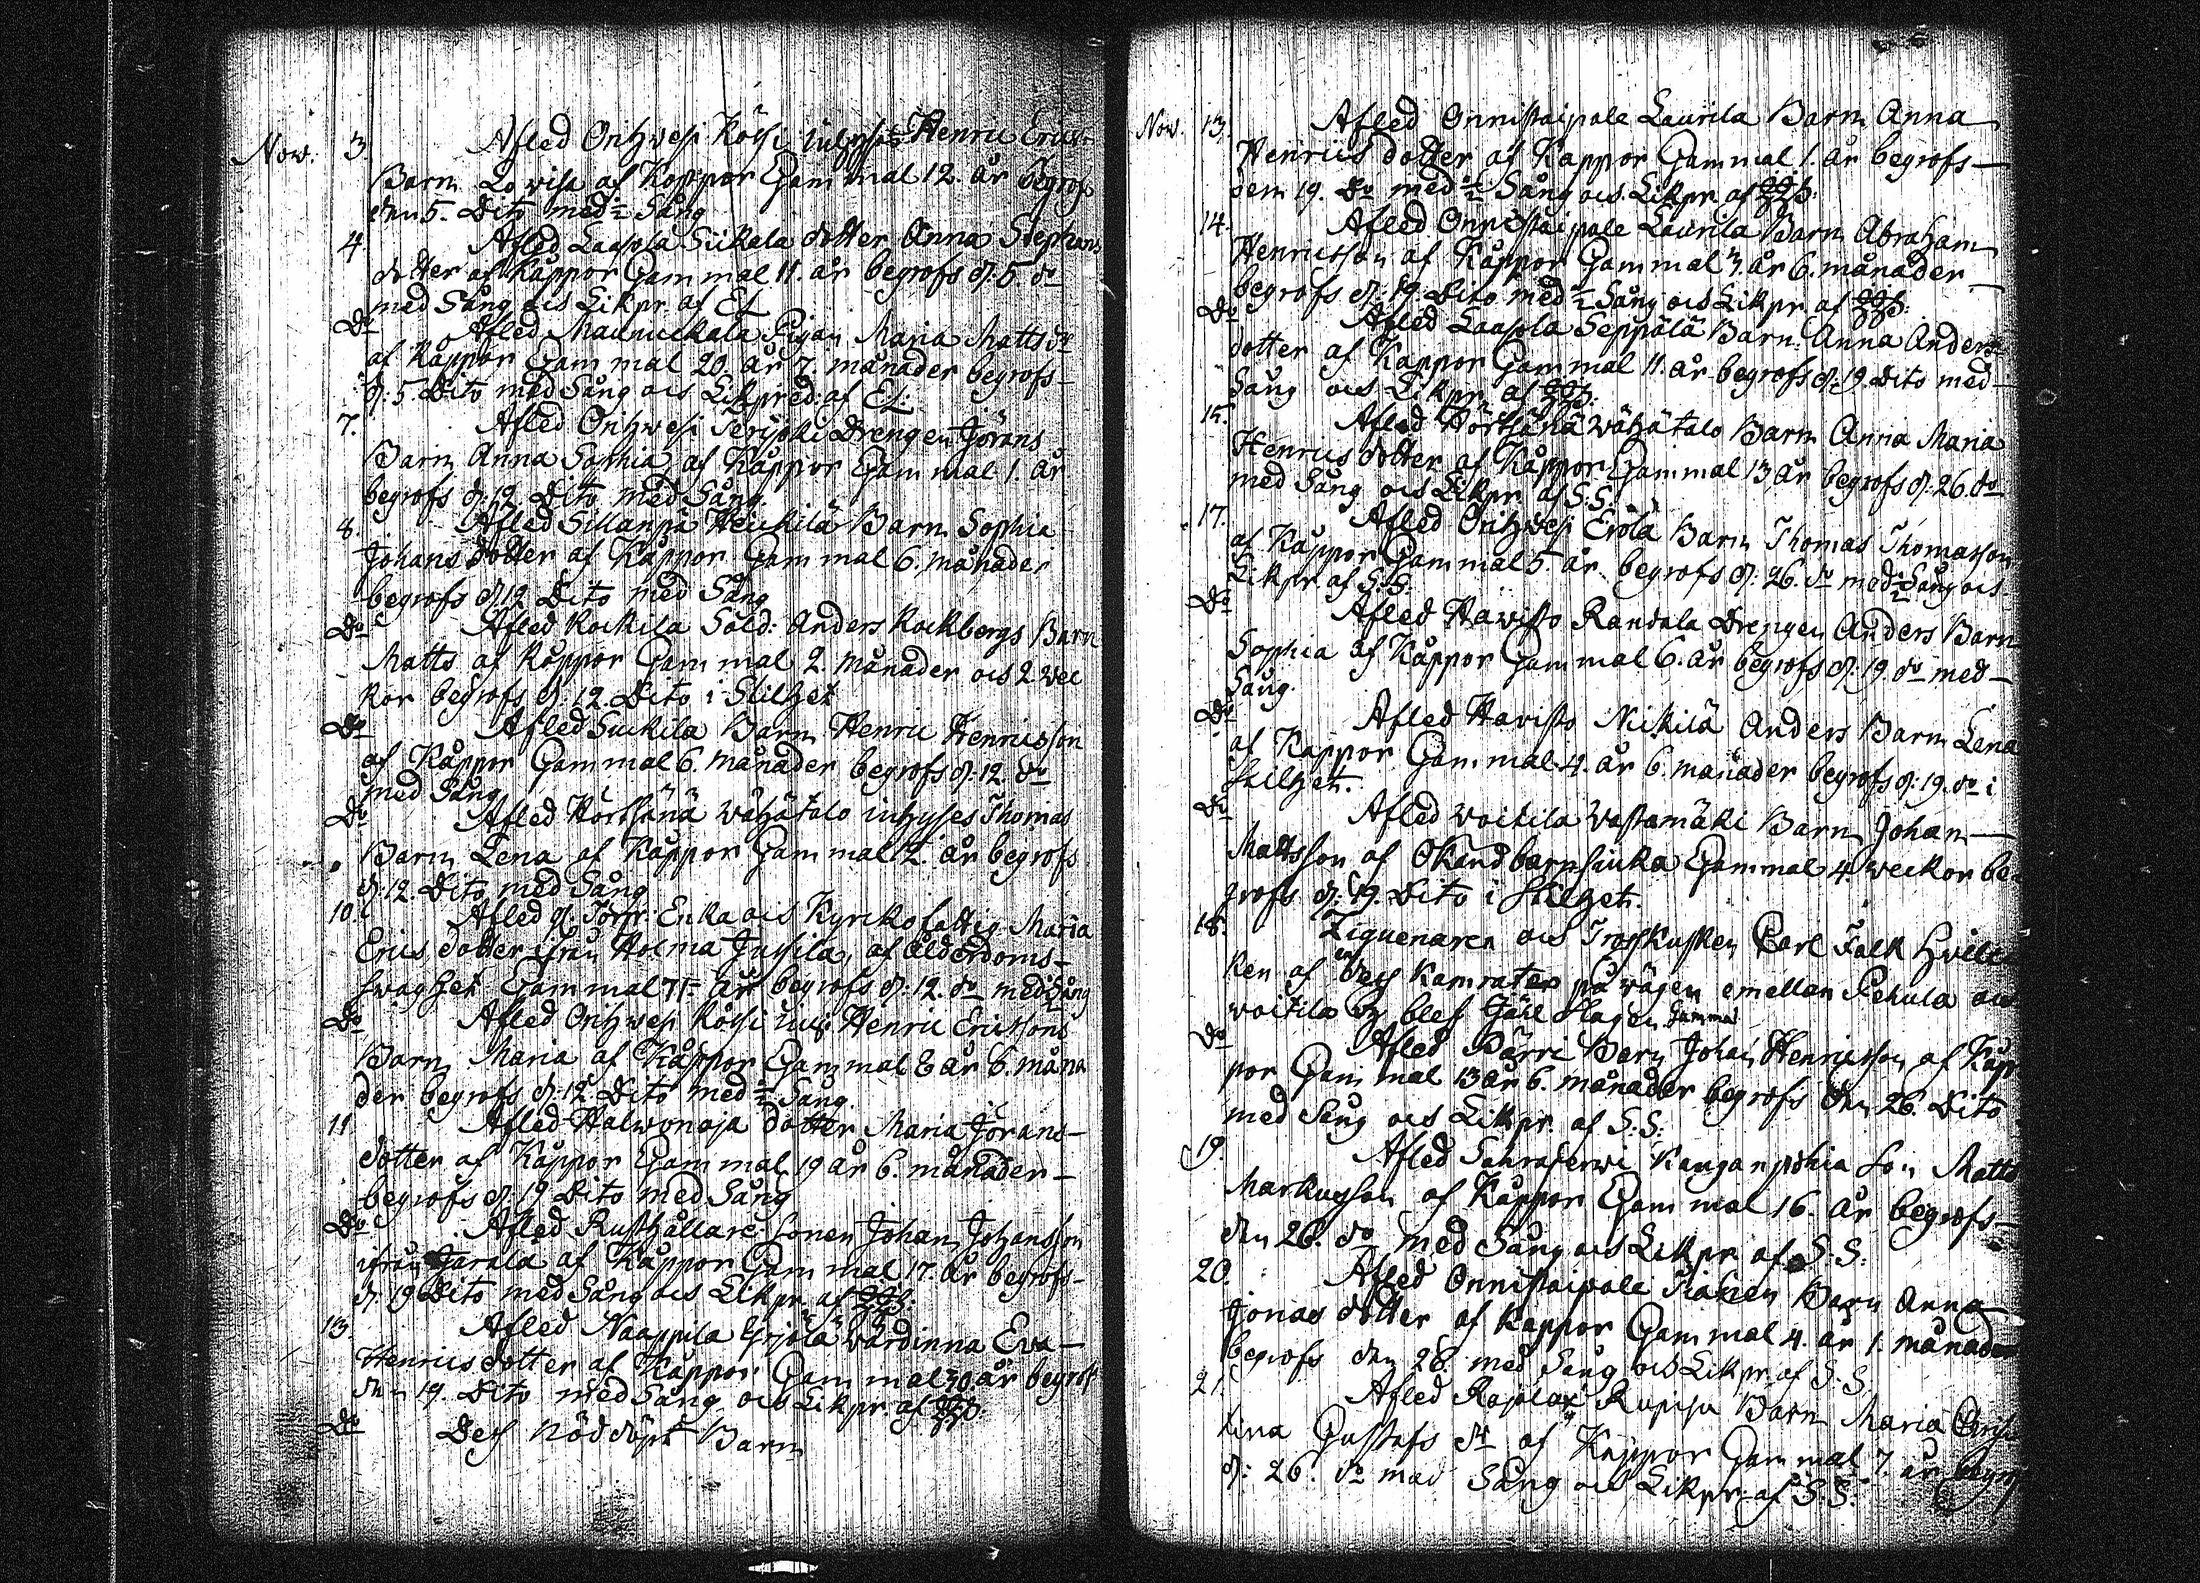 Now. 3. Afled Orihwesi Kössi inhyses Henric Erics
Barn Lovisa af Koppor Gammal 12. år begrofs
den 5. Dito med ½ Sång
4. Afled Laasola Siikala dotter Anna Stephans
dotter af Kåppor Gammal 11. år begrofs d: 5. do
med Sång och Likpr. af EL
Do Afled Maunuckala Pigan Maria Matts dr
af Kåppor Gammal 20. år 7. månader begrofs
d: 5 Dito med Sång och Likpred: af EL:
7. Afled Orihwesi Teryoki Drengen Jörans
Barn Anna Sophia af Kåppor Gammal 1. år
begrofs d: 12 Dito med Sång.
8. Afled Sillanpä Heickilä Barn Sophia
Johans dotter af Kåppor Gammal 6. månader
begrofs d 12 Dito med Sång
Do Afled Kockila Sold: Anders Kockbergs Barn
Matts af Kåppor Gammal 2. Månader och 2 wec
kor begrofs d: 12. Dito i Stilhet
Do Afled Suckila Barn Henric Henricsson
af Kåppor Gammal 6. månader begrofs d: 12 do
med Sång
Do Afled Körtsänä wähätalo inhyses Thomas
Barn Lena af Kåppor Gammal 2. år begrofs
d: 12. Dito med Sång
10. Afled Enka och Kyrkofattig Maria
Erics dotter ifrån Holma Jussila, af Ålderdoms-
swaghet Gammal år begrofs d: 12. do med Sång
Do Afled Orihwesi Kössi Henric Ericssons
Barn Maria af Kåppor Gammal 8 år 6. måna
der begrofs d: 12 Dito med ½ Sång.
11 Afled Halwonoja dotter Maria Jörans-
dotter af Kåppor Gammal 19 år 6. månader-
begrofs d: 19 Dito med Sång
Do Afled Rusthållare Sonen Johan Johansson
ifrån Jarala af Kåppor Gammal 17. år begrofs-
d: 19 Dito med Sång och Likpr. af
13. Afled Naappila Yrjölä wärdinna Eva-
Henrics dotter af Kåppor Gammal 30. år begrof
den 19. Dito med Sång och Likpr af
Do Dess Nöddöpt Barn
Nov. 13. Afled Onnistaipale Laurila Barn Anna
Henrics dotter af Kåppor Gammal 1. år begrofs-
den 19. Do med ½ Sång och Likpr. af
14. Afled Onnistaipale Laurila Barn Abraham
Henricsson af Kåppor Gammal 3. år 6. månader
begrofs d: 19. Dito med ½ Sång och Likpr. af
Do Afled Laasola Seppälä Barn Anna Anders
dotter af Kåppor Gammal 11. år begrofs d: 19. Dito med-
Sång och Likpr af
15. Afled Körtsänä wähätalo Barn Anna Maria
Henrics dotter af Kåppor Gammal 13 år begrofs d: 26. do
med Sång och Likpr. af S: S.
17. Afled Orihwesi Erölä Barn Thomas Thomasson
af Kåppor Gammal 5. år begrofs d: 26. do med ½ Sång och
Likpr. af S. S.
Do Afled Havisto Randala Drengen Anders Barn
Sophia af Kåppor Gammal 6. år begrofs d: 19. do med-
Sång.
Do Afled Havisto Nickilä Anders Barn Lena
af Kåppor Gammal 4. år 6. månader begrofs d: 19. do i
Stilhet.
Do Afled Woitila Wastamäki Barn Johan
Mattsson af Okänd barnsiuka Gammal 4. weckor be-
grofs d: 19. Dito i Stilhet.
18. Ziguenaren och Carl Falk hvilc
ken af en Dess Kamrater på wägen emellan Pehula och
Woitila blef ihjäl slagen Gammal
Do Afled Pärri Barn Johan Henricsson af Kåpp
por Gammal 13 år 6. månader begrofs den 26. Dito
med Sång och Likpr. af S: S:
19. Afled Sahrajerwi Kanganpohia Son Matts
Markusson af Kåppor Gammal 16. år begrofs-
den 26. do med Sång och Likpr. af S. S.
20. Afled Onnistaipale Barn Anna
Jonas dotter af Kåppor Gammal 4. år 1. månader
begrofs den 26. med Sång och Likpr. af S. S
21. Afled Rajalax Barn Maria Chris
tina Gustafs dr af Kåppor Gammal 7. år begrof
d: 26. do med Sång och Likpr. af S. S.